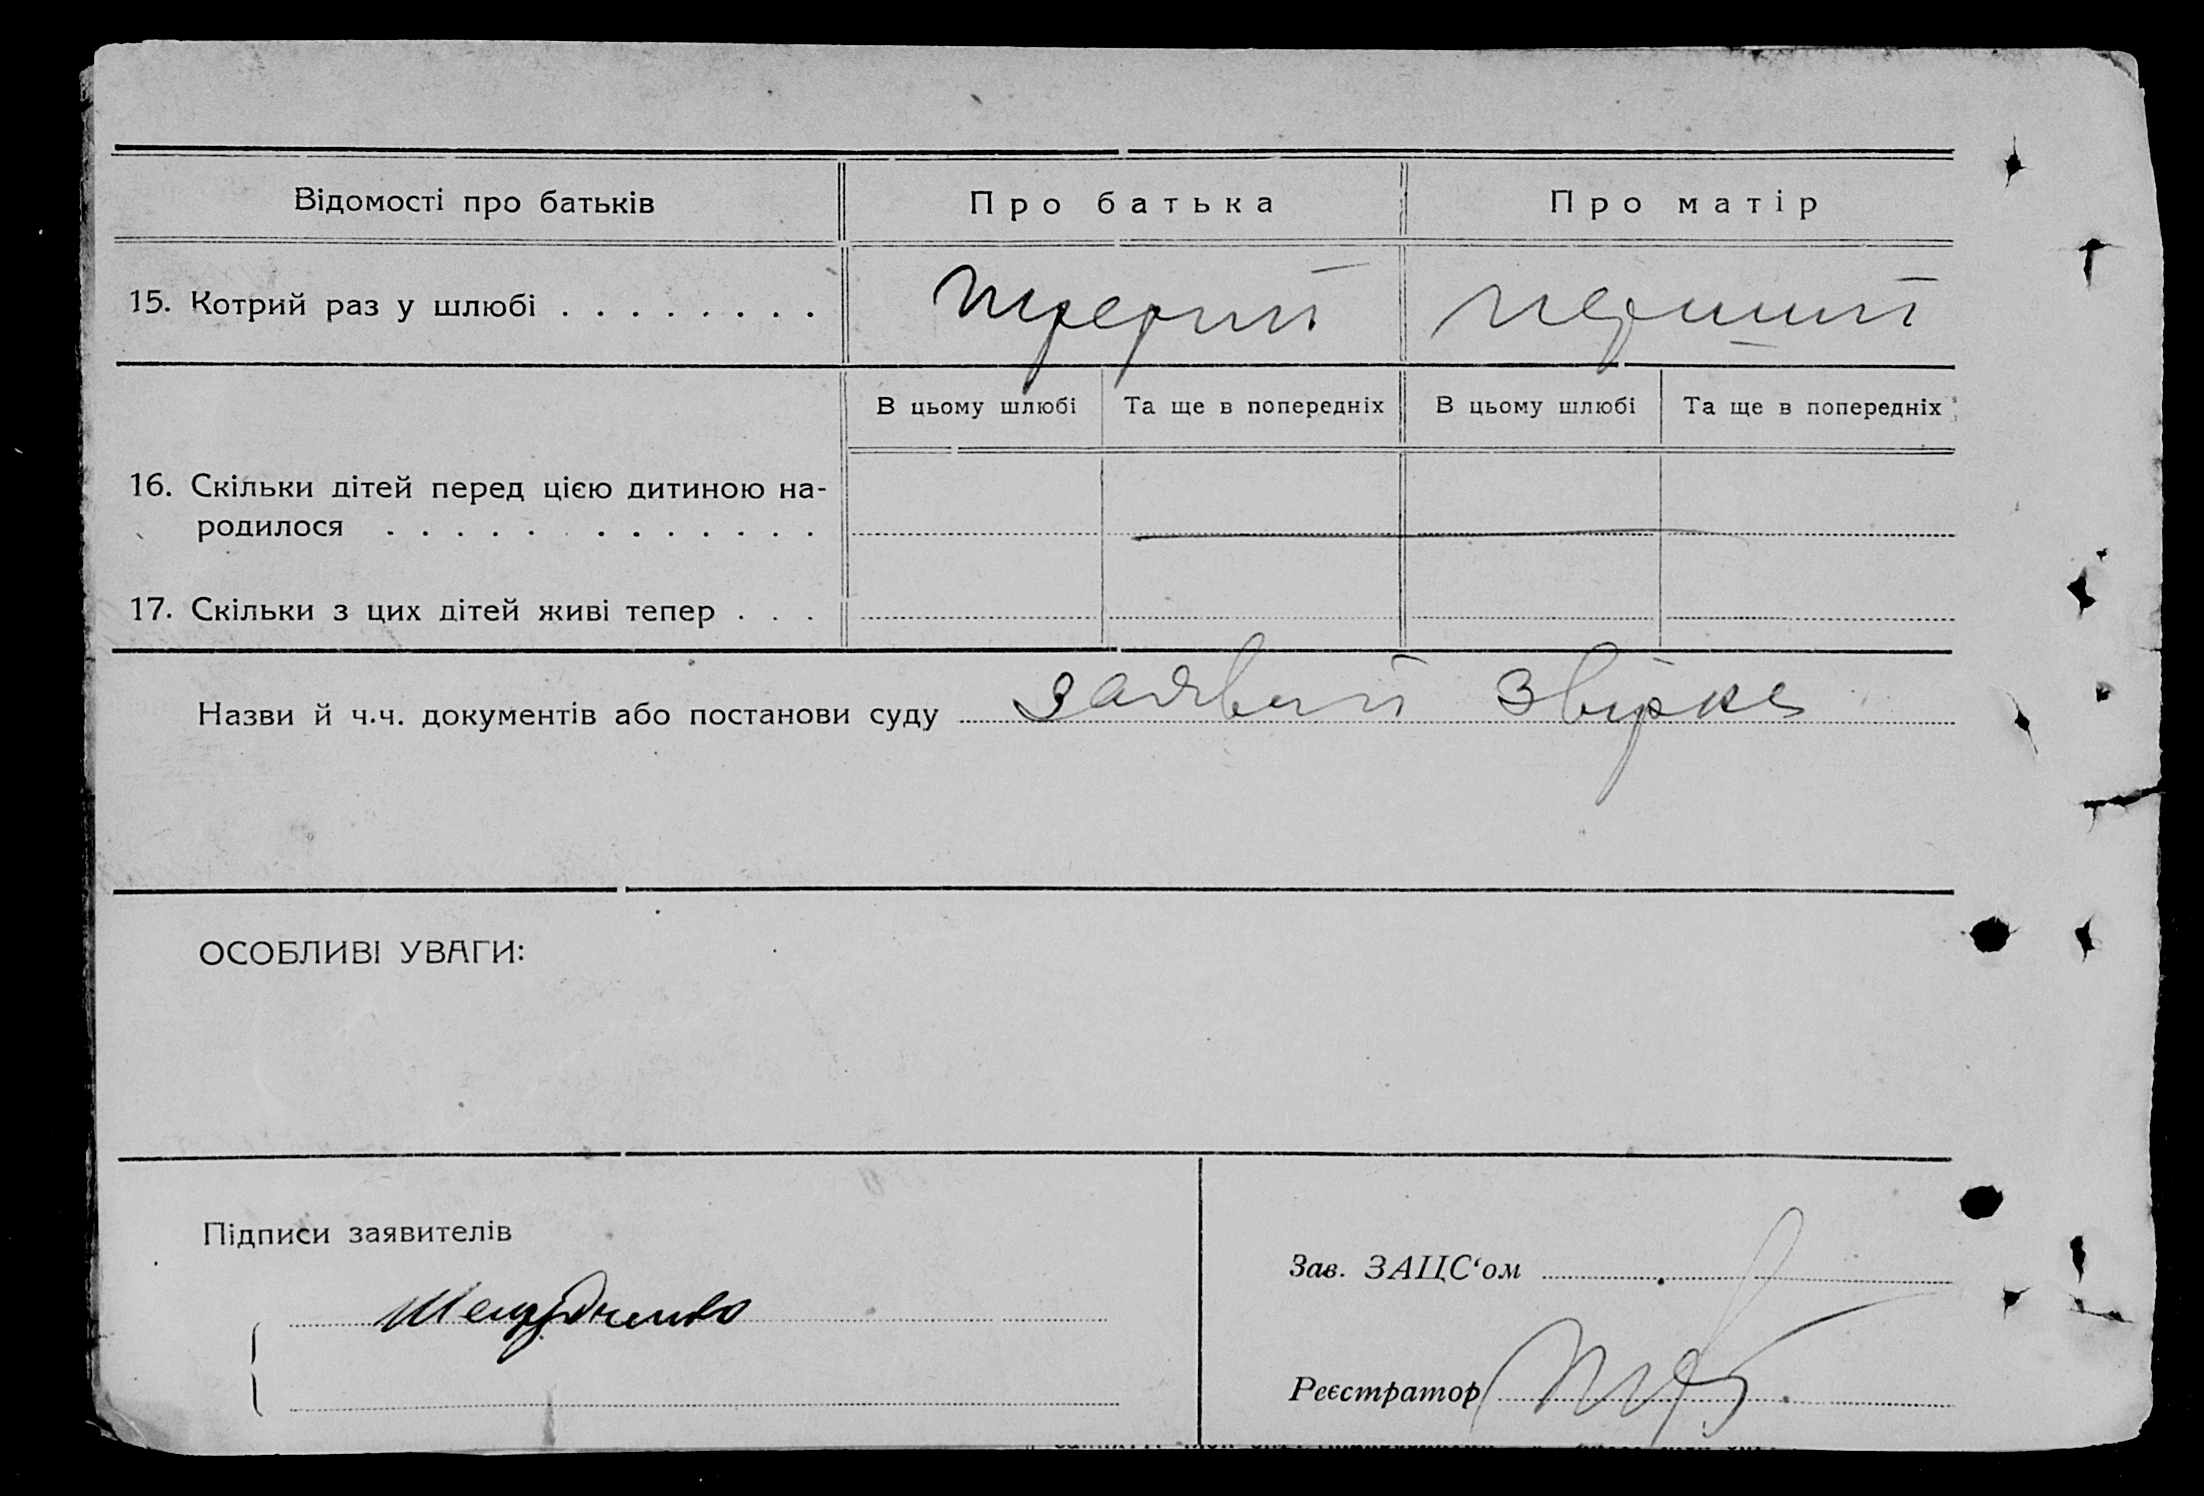 Відомості про батьків
Про батька
Про матір
15. Котрий раз у шлюбі . . . . . . . .
перший
В цьому шлюбі
Та ще в попередніх
В цьому шлюбі
Та ще в попередніх
16. Скільки дітей перед цією дитиною на-
родилося . . . . . . . . . . . . .
17. Скільки з цих дітей живі тепер . . .
Назви й ч.ч. документів або постанови суду
ОСОБЛИВІ УВАГИ:
Підписи заявителів
Зав. ЗАЦС‘ом
Реєстратор